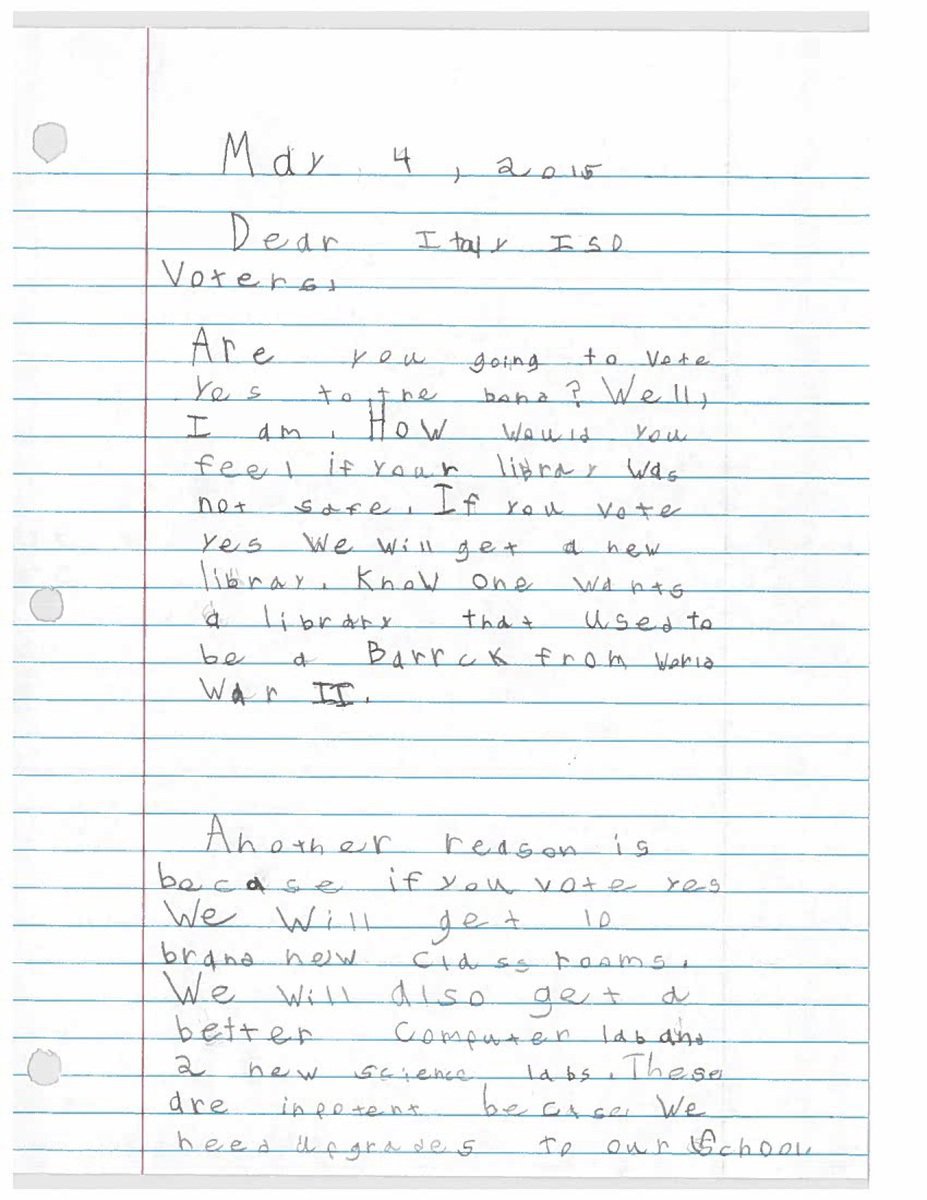 May 4, 2015
Dear Italy ISD
Voters,
Are you going to vote
yes to the bond? Well,
I am. How would you
feel if your library was
not safe. If you vote
yes We will get a new
library. Know one wants
a library that used to
be a Barrck from World
War II.
Another reason is
becase if you vote yes
We Will get 10
brand new classrooms.
We will also get a
better computer lab and
2 new science labs. These
are inpotent becase We
need upgrades to our School.